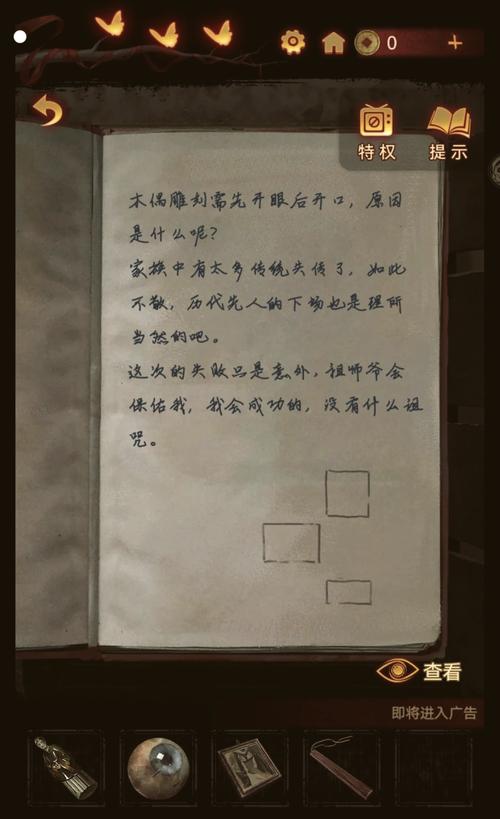 0
+
特权 提示
木偶雕刻需先开眼后开口，原因
是什么呢？
家族中有太多传统失传了，如此
不敬，历代先人的下场也是理所
当然的吧。
这次的失败只是意外，祖师爷会
保佑我，我会成功的，没有什么诅
咒。
查看
即将进入广告